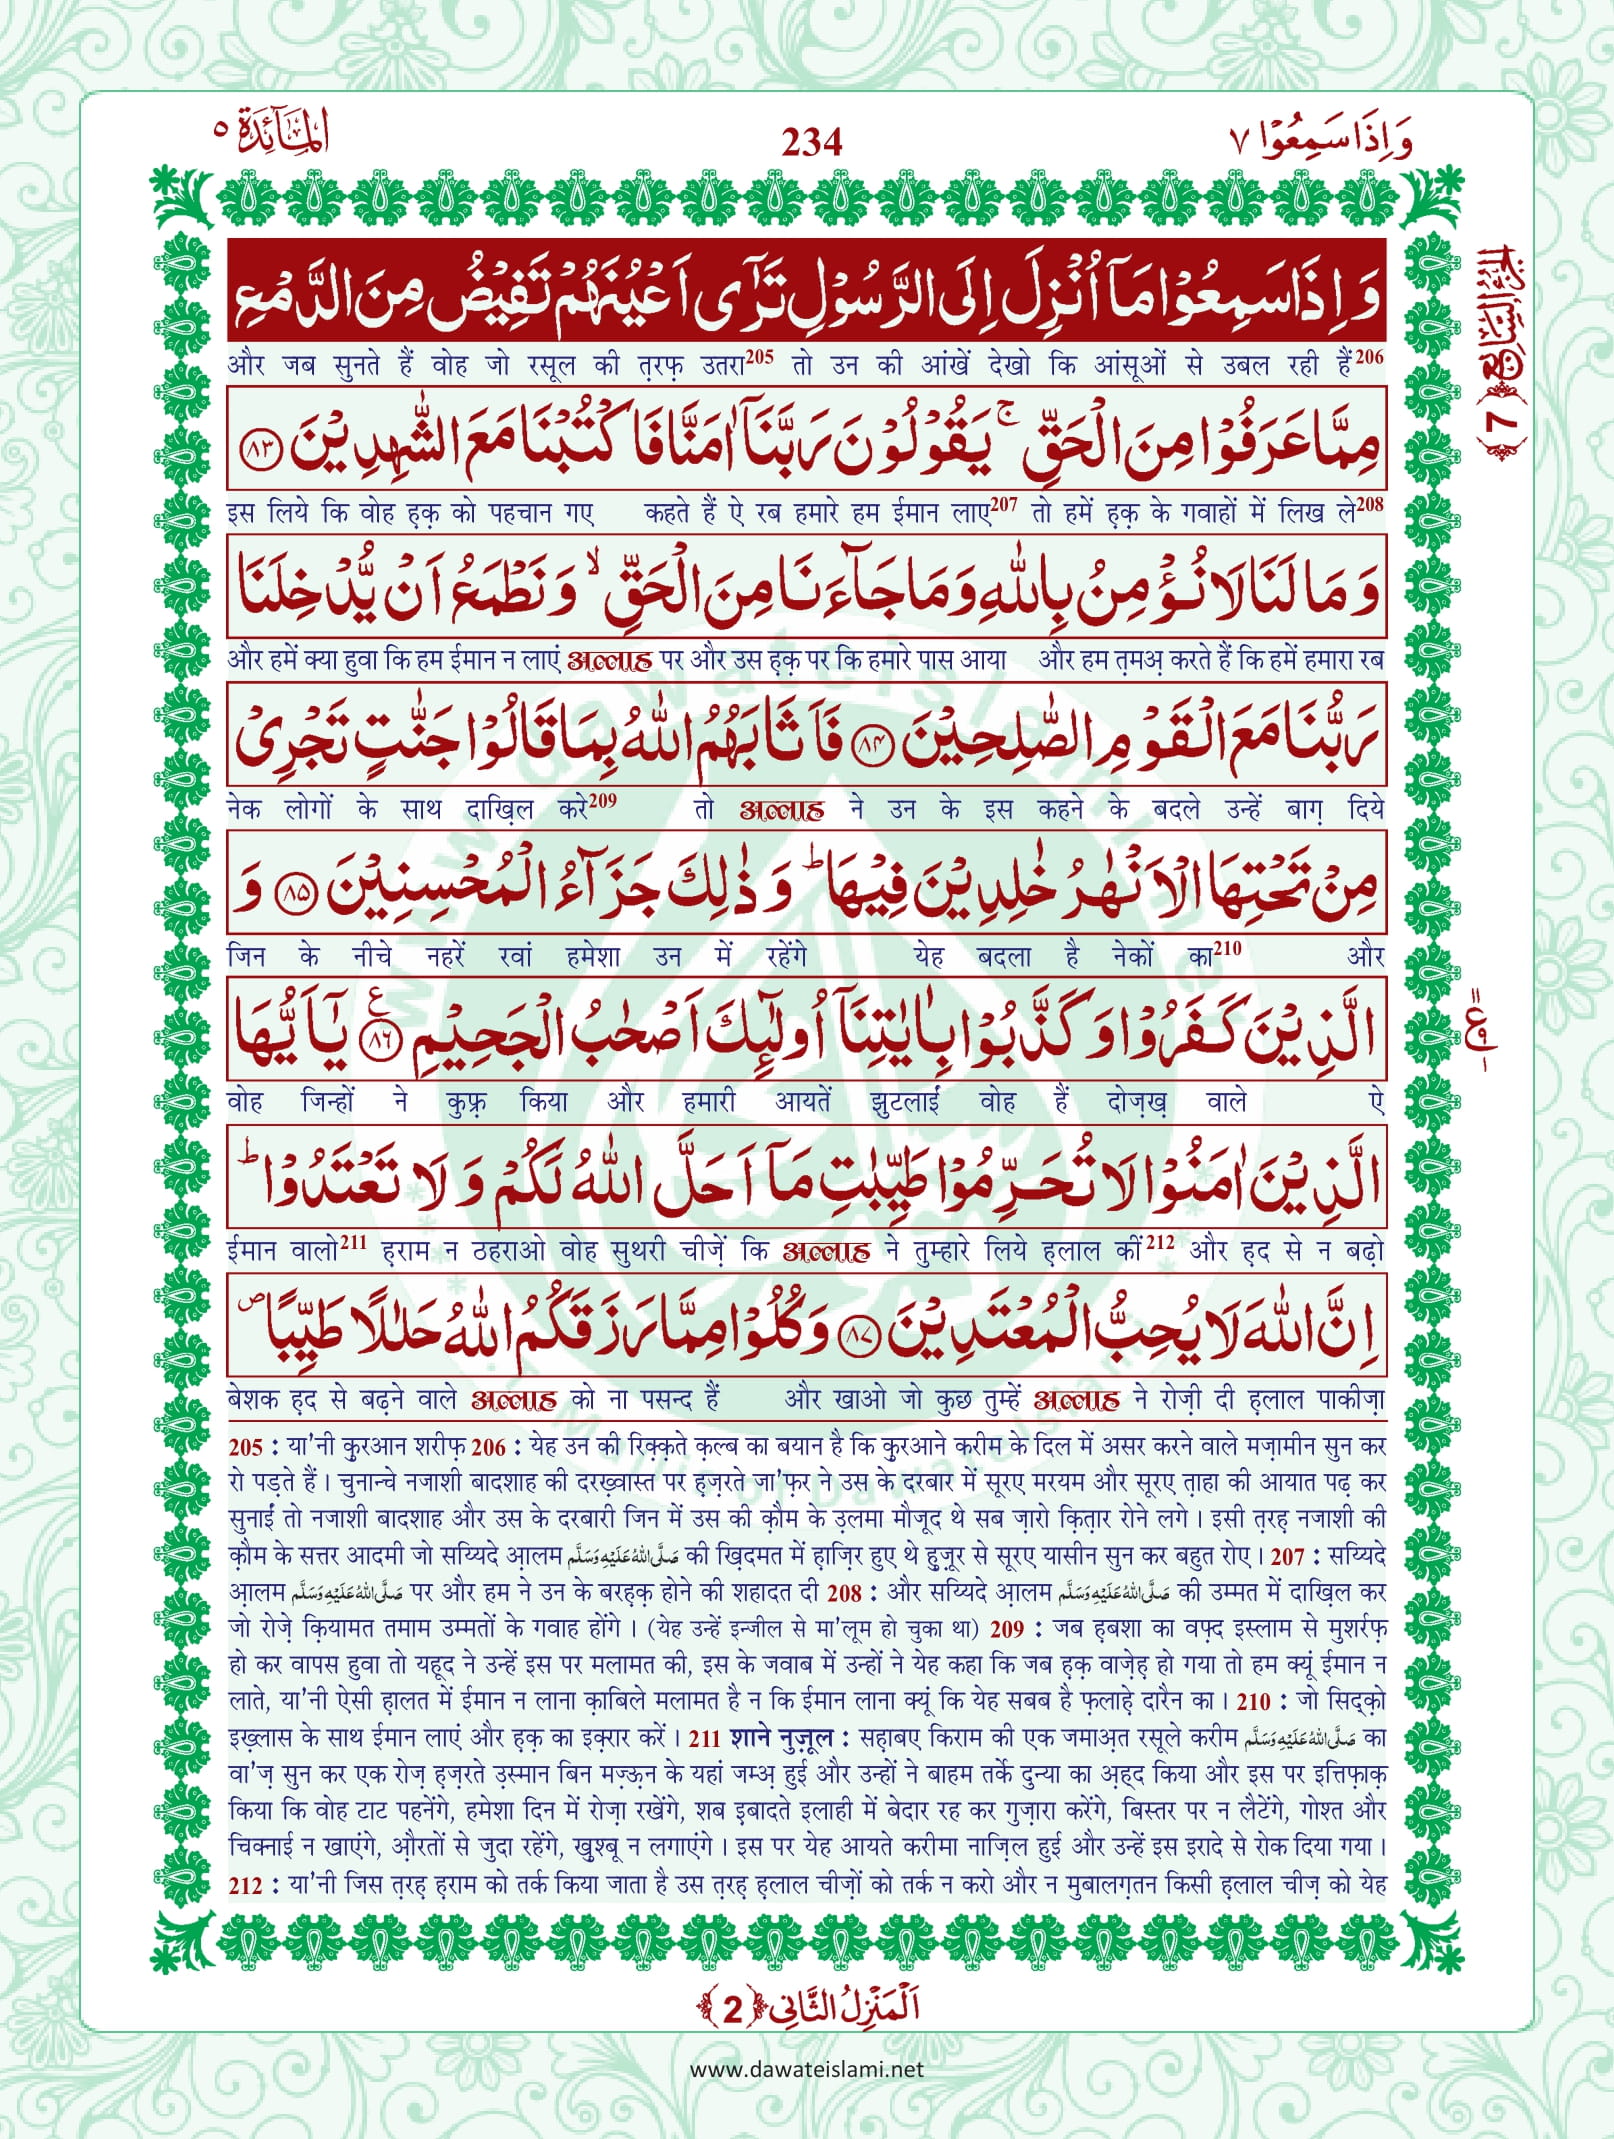 وَاِذَا سَمِعُوْا ٧
234
الْمَآئِدَة ٥
وَ اِذَا سَمِعُوْا مَاۤ اُنْزِلَ اِلَى الرَّسُوْلِ تَرٰۤى اَعْیُنَهُمْ تَفِیْضُ مِنَ الدَّمْعِ
और जब सुनते हैं वोह जो रसूल की त़रफ़ उतरा205 तो उन की आंखें देखो कि आंसूओं से उबल रही हैं206
مِمَّا عَرَفُوْا مِنَ الْحَقِّۚ یَقُوْلُوْنَ رَبَّنَاۤ اٰمَنَّا فَاكْتُبْنَا مَعَ الشّٰهِدِیْنَ ﴿٨٣﴾
इस लिये कि वोह ह़क़ को पहचान गए कहते हैं ऐ रब हमारे हम ईमान लाए207 तो हमें ह़क़ के गवाहों में लिख ले208
وَ مَا لَنَا لَا نُؤْمِنُ بِاللّٰهِ وَ مَا جَآءَنَا مِنَ الْحَقِّۙ وَ نَطْمَعُ اَنْ یُّدْخِلَنَا
और हमें क्या हुवा कि हम ईमान न लाएं अल्लाह पर और उस ह़क़ पर कि हमारे पास आया और हम त़मअ़ करते हैं कि हमें हमारा रब
رَبُّنَا مَعَ الْقَوْمِ الصّٰلِحِیْنَ ﴿٨٤﴾ فَاَثَابَهُمُ اللّٰهُ بِمَا قَالُوْا جَنّٰتٍ تَجْرِیْ
नेक लोगों के साथ दाख़िल करे209 तो अल्लाह ने उन के इस कहने के बदले उन्हें बाग़ दिये
مِنْ تَحْتِهَا الْاَنْهٰرُ خٰلِدِیْنَ فِیْهَاؕ وَ ذٰلِكَ جَزَآءُ الْمُحْسِنِیْنَ ﴿٨٥﴾ وَ
जिन के नीचे नहरें रवां हमेशा उन में रहेंगे येह बदला है नेकों का210 और
الَّذِیْنَ كَفَرُوْا وَ كَذَّبُوْا بِاٰیٰتِنَاۤ اُولٰٓىِٕكَ اَصْحٰبُ الْجَحِیْمِ ﴿٨٦﴾ ع یٰۤاَیُّهَا
वोह जिन्हों ने कुफ़्र किया और हमारी आयतें झुटलाईं वोह हैं दोज़ख़ वाले ऐ
الَّذِیْنَ اٰمَنُوْا لَا تُحَرِّمُوْا طَیِّبٰتِ مَاۤ اَحَلَّ اللّٰهُ لَكُمْ وَ لَا تَعْتَدُوْاؕ
ईमान वालो211 ह़राम न ठहराओ वोह सुथरी चीज़ें कि अल्लाह ने तुम्हारे लिये ह़लाल कीं212 और ह़द से न बढ़ो
اِنَّ اللّٰهَ لَا یُحِبُّ الْمُعْتَدِیْنَ ﴿٨٧﴾ وَ كُلُوْا مِمَّا رَزَقَكُمُ اللّٰهُ حَلٰلًا طَیِّبًا۪
बेशक ह़द से बढ़ने वाले अल्लाह को ना पसन्द हैं और खाओ जो कुछ तुम्हें अल्लाह ने रोज़ी दी ह़लाल पाकीज़ा
205 : या'नी क़ुरआन शरीफ़ 206 : येह उन की रिक़्क़ते क़ल्ब का बयान है कि क़ुरआने करीम के दिल में असर करने वाले मज़ामीन सुन कर
रो पड़ते हैं । चुनान्चे नजाशी बादशाह की दरख़्वास्त पर ह़ज़रते जा'फ़र ने उस के दरबार में सूरए मरयम और सूरए त़ाहा की आयात पढ़ कर
सुनाईं तो नजाशी बादशाह और उस के दरबारी जिन में उस की क़ौम के उ़लमा मौजूद थे सब ज़ारो क़ित़ार रोने लगे । इसी त़रह़ नजाशी की
क़ौम के सत्तर आदमी जो सय्यिदे आ़लम صَلَّى اللهُ عَلَيْهِ وَسَلَّم की ख़िदमत में ह़ाज़िर हुए थे हुज़ूर से सूरए यासीन सुन कर बहुत रोए । 207 : सय्यिदे
आ़लम صَلَّى اللهُ عَلَيْهِ وَسَلَّم पर और हम ने उन के बरह़क़ होने की शहादत दी 208 : और सय्यिदे आ़लम صَلَّى اللهُ عَلَيْهِ وَسَلَّم की उम्मत में दाख़िल कर
जो रोज़े क़ियामत तमाम उम्मतों के गवाह होंगे । (येह उन्हें इन्जील से मा'लूम हो चुका था) 209 : जब ह़बशा का वफ़्द इस्लाम से मुशर्रफ़
हो कर वापस हुवा तो यहूद ने उन्हें इस पर मलामत की, इस के जवाब में उन्हों ने येह कहा कि जब ह़क़ वाजे़ह़ हो गया तो हम क्यूं ईमान न
लाते, या'नी ऐसी ह़ालत में ईमान न लाना क़ाबिले मलामत है न कि ईमान लाना क्यूं कि येह सबब है फ़लाह़े दारैन का । 210 : जो सिद्क़ो
इख़्लास के साथ ईमान लाएं और ह़क़ का इक़्रार करें । 211 शाने नुज़ूल : सह़ाबए किराम की एक जमाअ़त रसूले करीम صَلَّى اللهُ عَلَيْهِ وَسَلَّم का
वा'ज़ सुन कर एक रोज़ ह़ज़रते उ़स्मान बिन मज़्ऊ़न के यहां जम्अ़ हुई और उन्हों ने बाहम तर्के दुन्या का अ़ह्द किया और इस पर इत्तिफ़ाक़
किया कि वोह टाट पहनेंगे, हमेशा दिन में रोज़ा रखेंगे, शब इ़बादते इलाही में बेदार रह कर गुज़ारा करेंगे, बिस्तर पर न लैटेंगे, गोश्त और
चिक्नाई न खाएंगे, औ़रतों से जुदा रहेंगे, खुश्बू न लगाएंगे । इस पर येह आयते करीमा नाज़िल हुई और उन्हें इस इरादे से रोक दिया गया ।
212 : या'नी जिस त़रह़ ह़राम को तर्क किया जाता है उस त़रह़ ह़लाल चीज़ों को तर्क न करो और न मुबालग़तन किसी ह़लाल चीज़ को येह
الجزء السابع ﴿7﴾
ع
اَلْمَنْزِلُ الثَّانِی ﴿2﴾
www.dawateislami.net